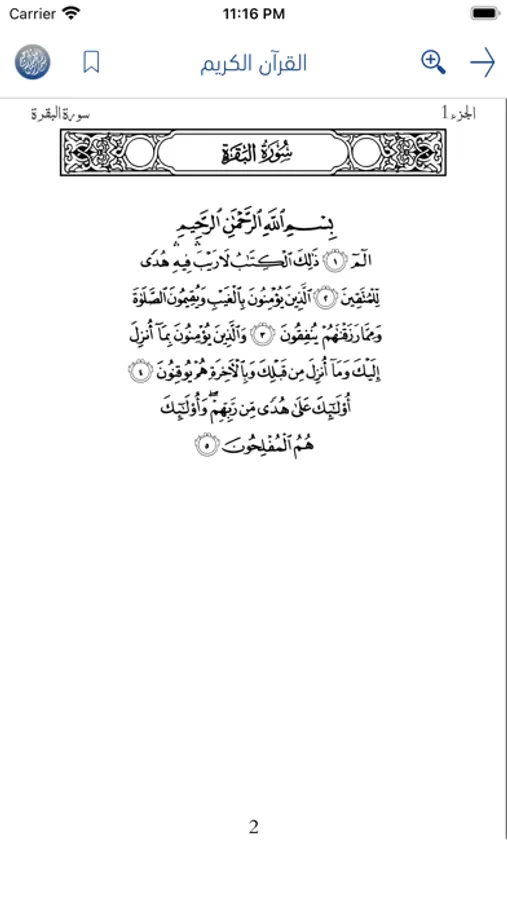 Carrier 11:16 PM
القرآن الكريم
الجزء 1 سورة البقرة
سُورَةُ البَقَرَةِ
بِسْمِ ٱللَّهِ ٱلرَّحْمَٰنِ ٱلرَّحِيمِ
الٓمٓ ١ ذَٰلِكَ ٱلْكِتَٰبُ لَا رَيْبَ ۛ فِيهِ ۛ هُدًى
لِّلْمُتَّقِينَ ٢ ٱلَّذِينَ يُؤْمِنُونَ بِٱلْغَيْبِ وَيُقِيمُونَ ٱلصَّلَوٰةَ
وَمِمَّا رَزَقْنَٰهُمْ يُنفِقُونَ ٣ وَٱلَّذِينَ يُؤْمِنُونَ بِمَآ أُنزِلَ
إِلَيْكَ وَمَآ أُنزِلَ مِن قَبْلِكَ وَبِٱلْءَاخِرَةِ هُمْ يُوقِنُونَ ٤
أُو۟لَٰٓئِكَ عَلَىٰ هُدًى مِّن رَّبِّهِمْ ۖ وَأُو۟لَٰٓئِكَ
هُمُ ٱلْمُفْلِحُونَ ٥
2